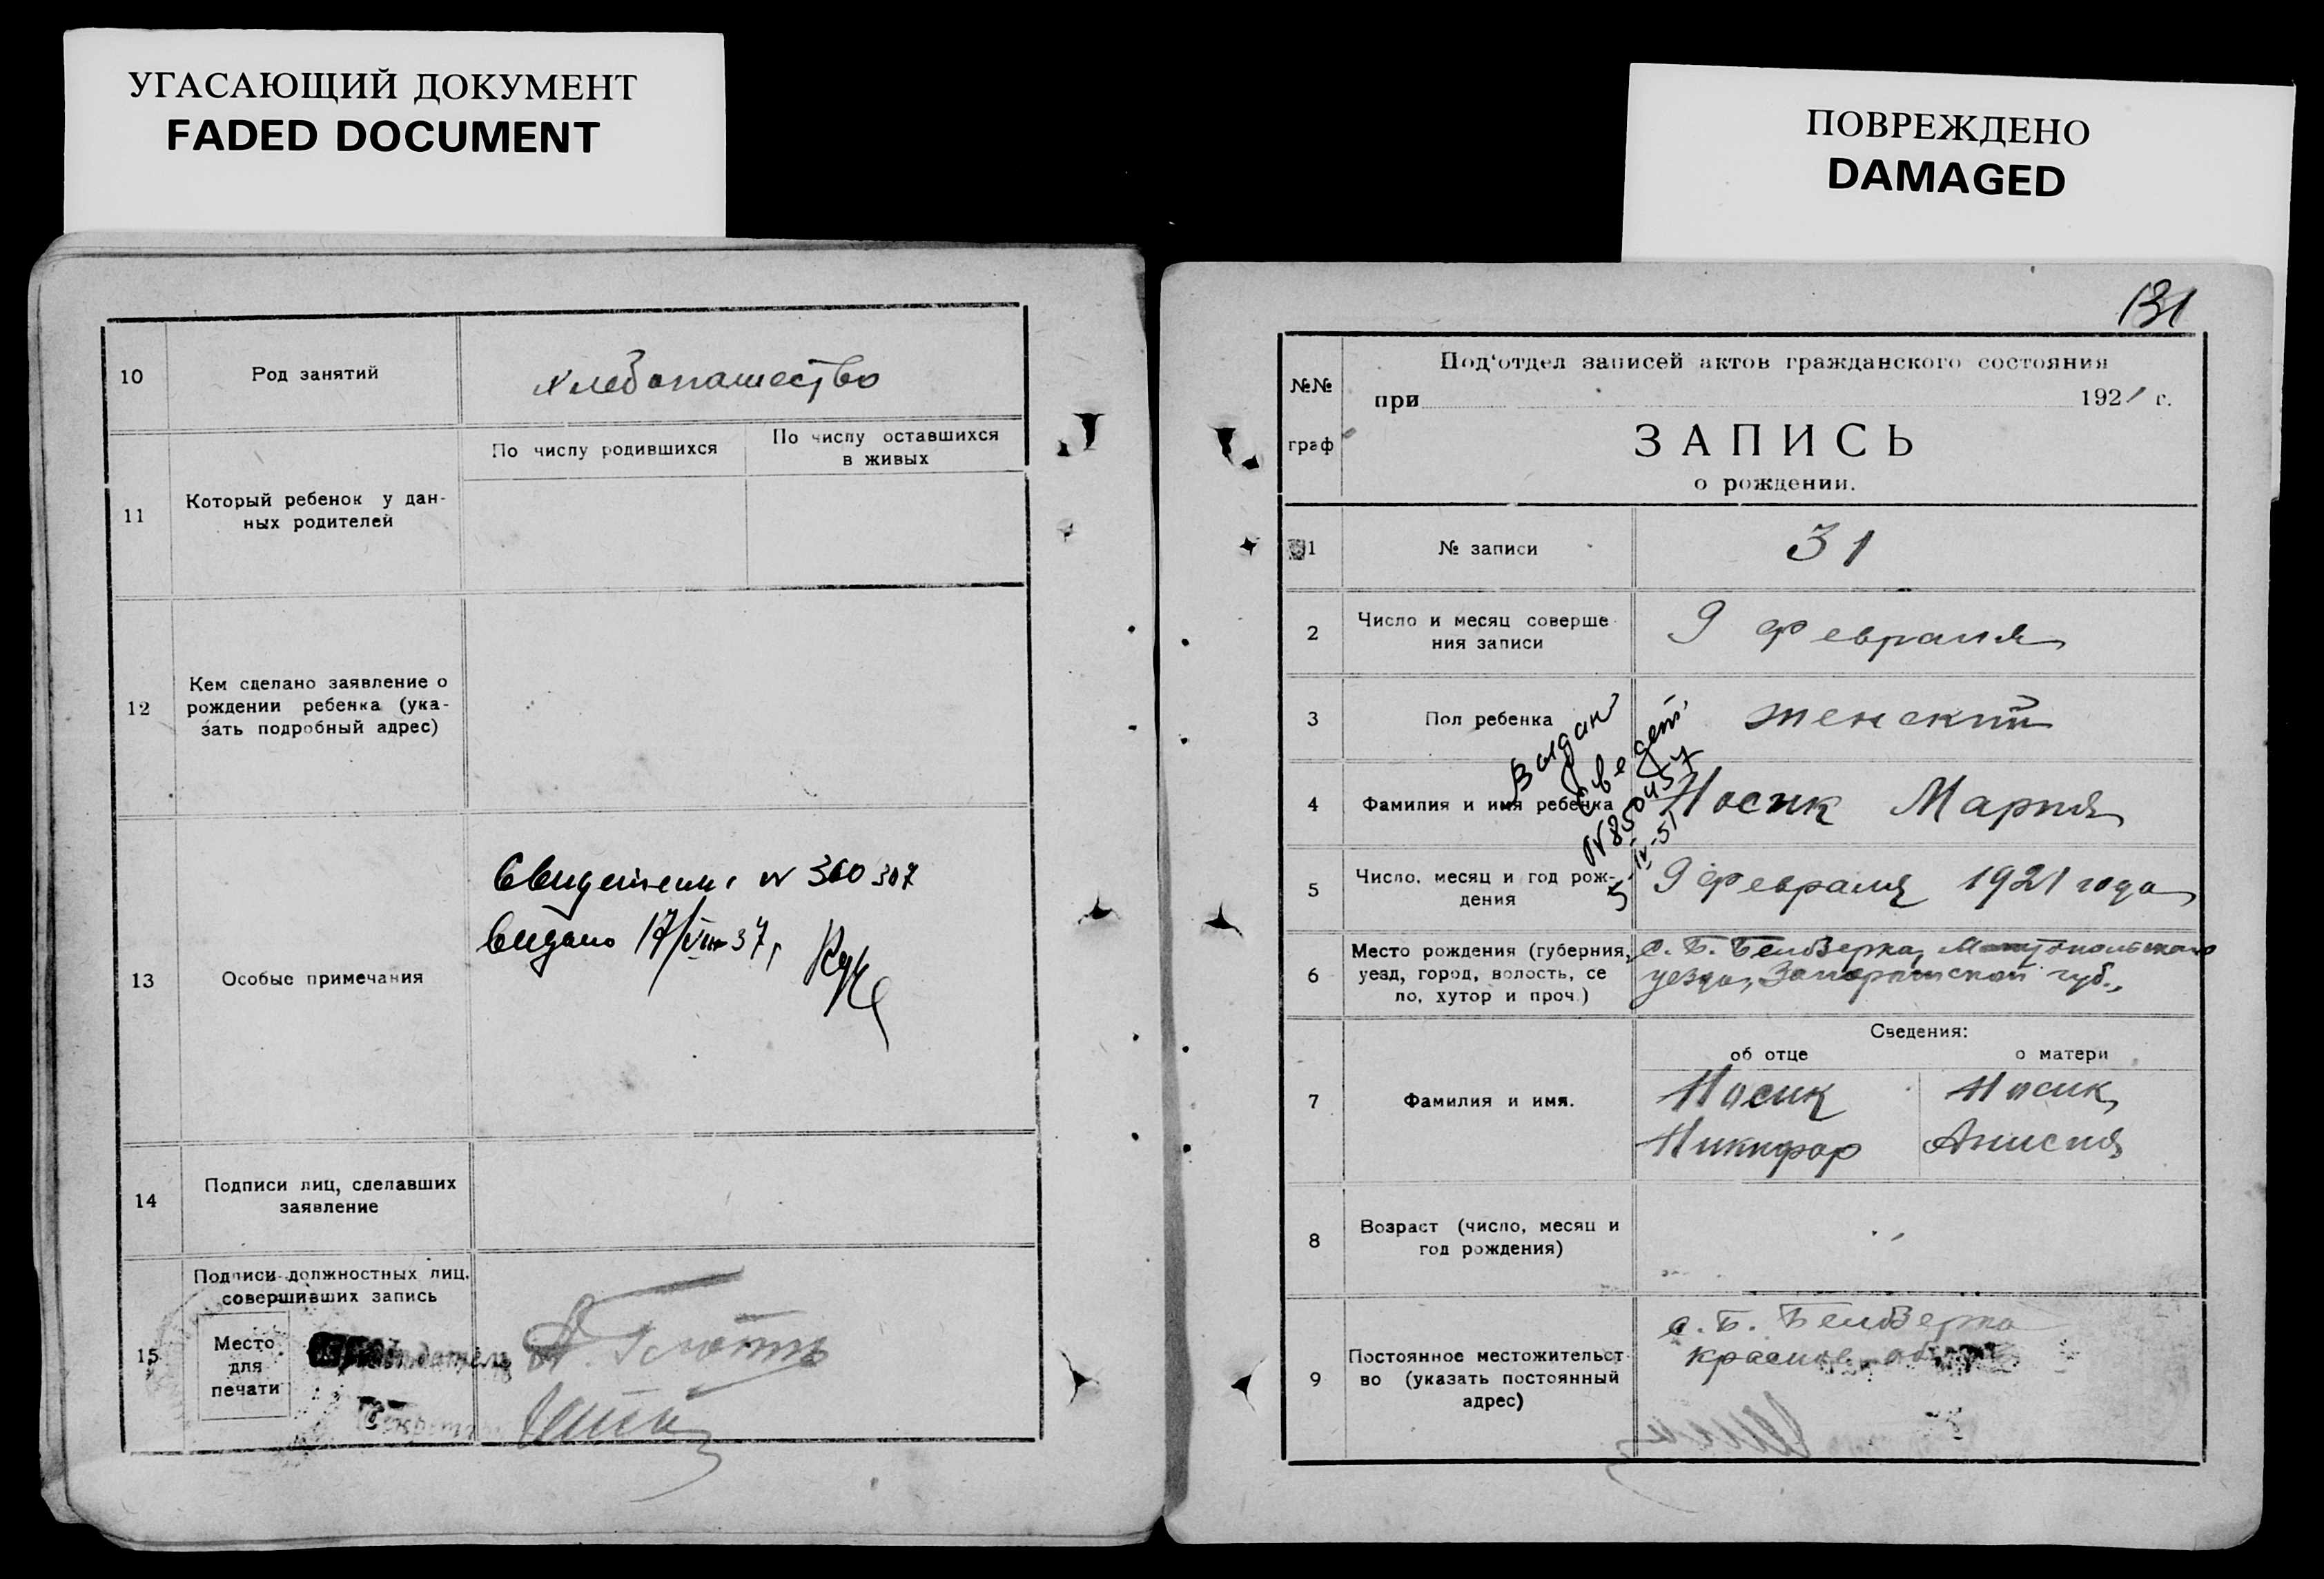 УГАСАЮЩИЙ ДОКУМЕНТ
FADED DOCUMENT
ПОВРЕЖДЕНО
DAMAGED
10
Род занятий
хлебопашество
11
Который ребенок у дан-
ных родителей
По числу родившихся
По числу оставшихся
в живых
12
Кем сделано заявление о
рождении ребенка (ука-
зать подробный адрес)
13
Особые примечания
№ 360307
видано 17/VIII 37
14
Подписи лиц, сделавших
заявление
15
Подписи должностных лиц.
совершивших запись
Место
для
печати
131
№№
граф
Под‘отдел записей актов гражданского состояния
при 1921 г.
ЗАПИСЬ
о рождении.
1
№ записи
31
2
Число и месяц соверше
ния записи
9 февраля
3
Пол ребенка
женский
Выдан
свидет.
№850457
5-IV-51
4
Фамилия и имя ребенка
Носик Мария
5
Число, месяц и год рож-
дения
9 февраля 1921 года
6
Место рождения (губерния,
уезд, город, волость, се
ло, хутор и проч.)
с. Б. Белозерка, Мелитопольского
уезда, Запорожской губ.,
Сведения:
об отце
о матери
7
Фамилия и имя.
Носик
Никифор
Носик
Анисия
8
Возраст (число, месяц и
год рождения)
9
Постоянное местожительст
во (указать постоянный
адрес)
с. Б. Белозерка